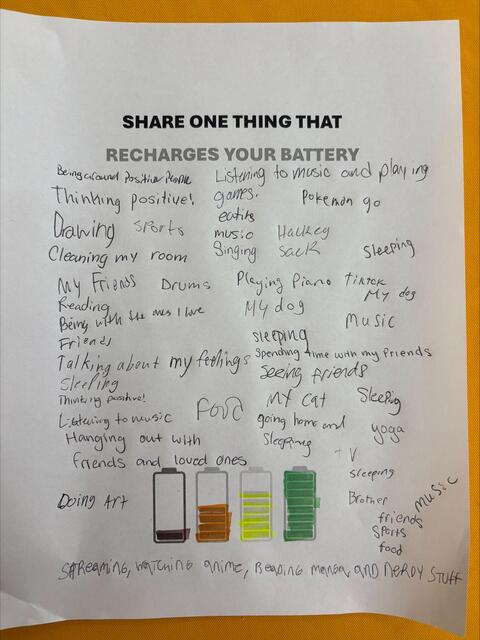 SHARE ONE THING THAT
RECHARGES YOUR BATTERY
Being around Positive People
Listening to music and playing
games.
Thinking positive!
Pokemon go
eating
Drawing
Sports
music
Hackey
Sack
Singing
Sleeping
Cleaning my room
My Friends
Drums
Playing Piano
Tiktok
My dog
Reading
My dog
Being with the ones I love
music
Friends
Sleeping
Spending time with my friends
Talking about my feelings
Seeing friends
Sleeping
Thinking positive!
Food
My cat
Sleeping
Listening to music
going home and
Sleeping
yoga
Hanging out with
friends and loved ones
TV
sleeping
Doing Art
Brother
music
friends
Sports
food
STREAMING, WATCHING ANIME, READING MANGA, AND NERDY STUFF